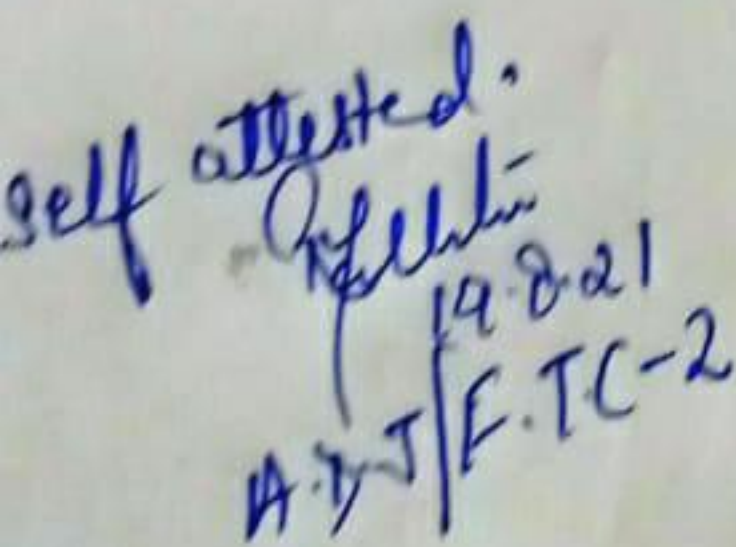 Self attested.
19.8.21
A.D.J/F.T.C-2